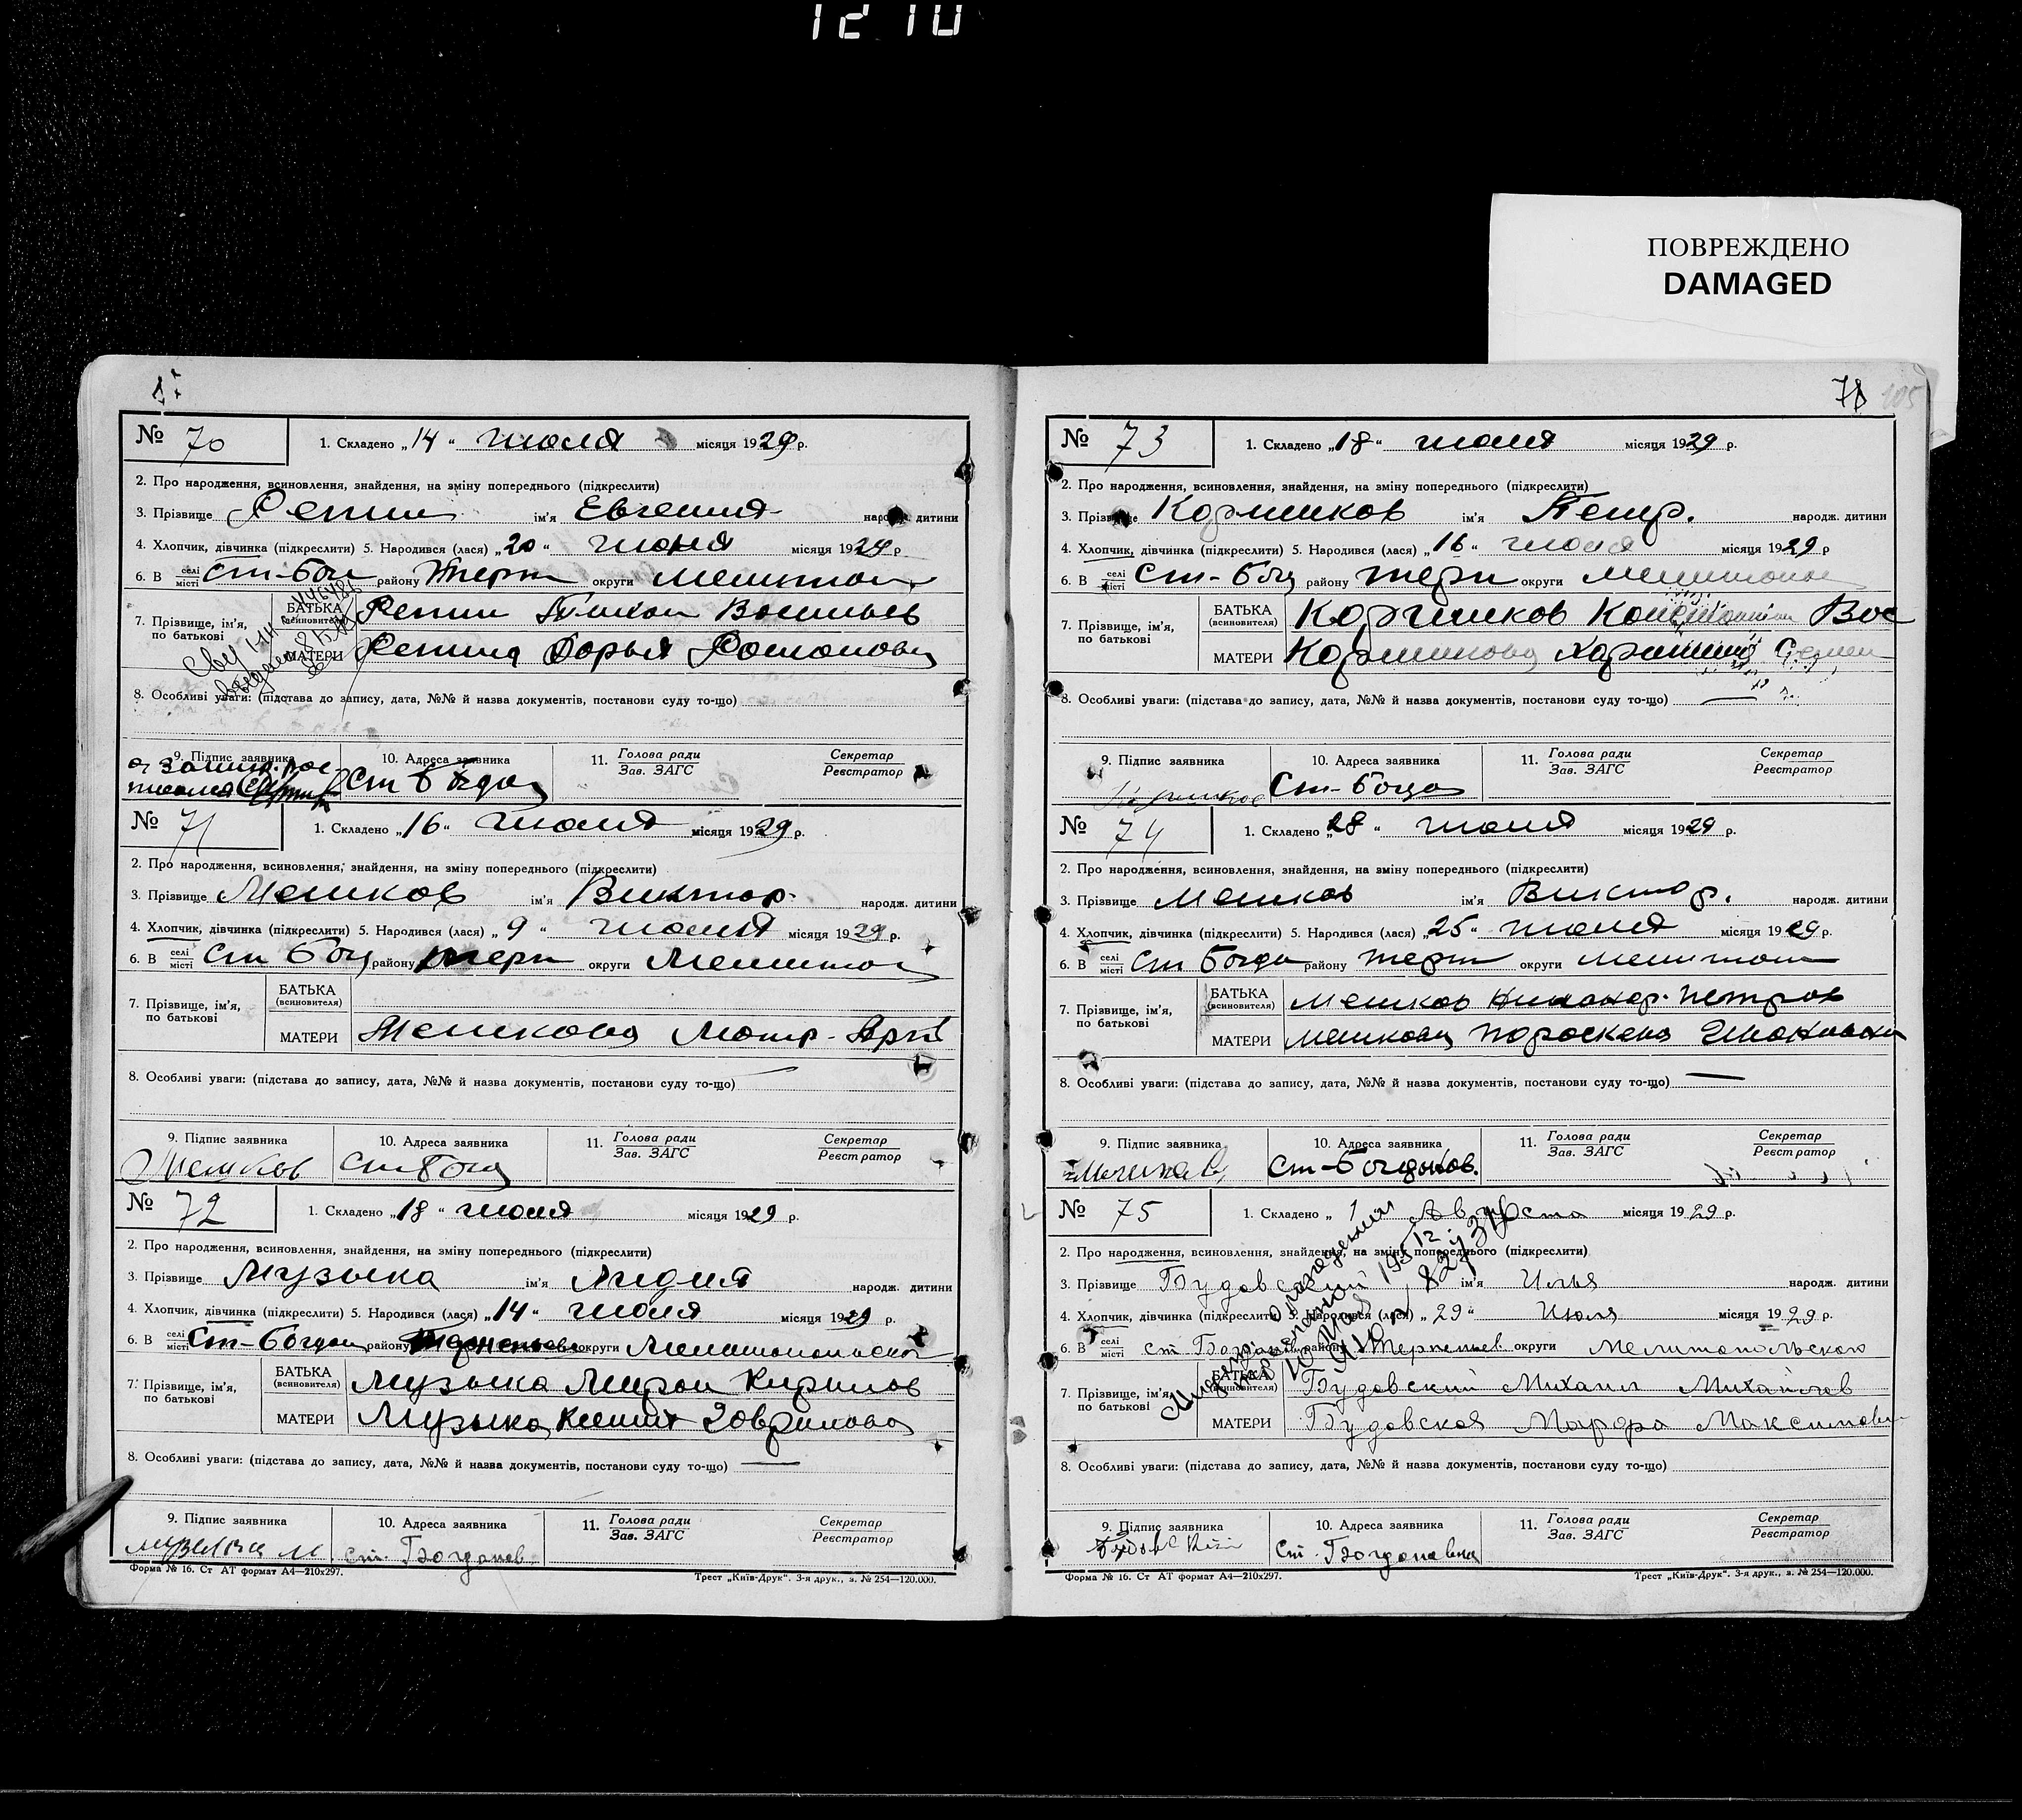 12 10
ПОВРЕЖДЕНО
DAMAGED
№ 70
1. Складено „14“ июля місяця 1929 р.
2. Про народження, всиновлення, знайдення, на зміну попереднього (підкреслити)
3. Прізвище Репин ім'я Евгения народ. дитини
4. Хлопчик, дівчинка (підкреслити) 5. Народився (лася) „20“ июня місяця 1929 р
6. В селі місті Ст-Бог району Терп округи Мелитоп
7. Прізвище, ім'я, по батькові
БАТЬКА (всиновителя) Репин Васильев
МАТЕРИ Репина Дарья Романовн
8. Особливі уваги: (підстава до запису, дата, №№ й назва документів, постанови суду то-що)
9. Підпис заявника
10. Адреса заявника Ст Богда
11. Голова ради Зав. ЗАГС
Секретар Реєстратор
№ 71
1. Складено „16“ июля місяця 1929 р.
2. Про народження, всиновлення, знайдення, на зміну попереднього (підкреслити)
3. Прізвище Мешков ім'я Виктор. народж. дитини
4. Хлопчик, дівчинка (підкреслити) 5. Народився (лася) „9“ июля місяця 1929 р.
6. В селі місті Ст Бог району Терп округи Мелитоп
7. Прізвище, ім'я, по батькові
БАТЬКА (всиновителя)
МАТЕРИ Мешкова Мотр.
8. Особливі уваги: (підстава до запису, дата, №№ й назва документів, постанови суду то-що)
9. Підпис заявника Мешков
10. Адреса заявника Ст Бог
11. Голова ради Зав. ЗАГС
Секретар Реєстратор
№ 72
1. Складено „18“ июля місяця 1929 р.
2. Про народження, всиновлення, знайдення, на зміну попереднього (підкреслити)
3. Прізвище Музыка ім'я Лидия народж. дитини
4. Хлопчик, дівчинка (підкреслити) 5. Народився (лася) „14“ июля місяця 1929 р.
6. В селі місті Ст-Богдан району округи Мелитопольской
7. Прізвище, ім'я, по батькові
БАТЬКА (всиновителя) Музыка Мирон Кирилов
МАТЕРИ Музыка Ксения Гаврилова
8. Особливі уваги: (підстава до запису, дата, №№ й назва документів, постанови суду то-що)
9. Підпис заявника Музыка М.
10. Адреса заявника Ст. Богданов.
11. Голова ради Зав. ЗАГС
Секретар Реєстратор
Форма № 16. Ст АТ формат А4—210х297.
Трест „Київ-Друк“. 3-я друк., з. № 254—120.000.
78 105
№ 73
1. Складено „18“ июля місяця 1929 р.
2. Про народження, всиновлення, знайдення, на зміну попереднього (підкреслити)
3. Прізвище Коршиков ім'я Петр. народж. дитини
4. Хлопчик, дівчинка (підкреслити) 5. Народився (лася) „16“ июля місяця 1929 р
6. В селі місті Ст-Богд району Терп округи Мелитопол
7. Прізвище, ім'я, по батькові
БАТЬКА (всиновителя) Коршиков Вас
МАТЕРИ Коршикова Харитина Семен
8. Особливі уваги: (підстава до запису, дата, №№ й назва документів, постанови суду то-що)
9. Підпис заявника Коршиков
10. Адреса заявника Ст-Богда
11. Голова ради Зав. ЗАГС
Секретар Реєстратор
№ 74
1. Складено „28“ июля місяця 1929 р.
2. Про народження, всиновлення, знайдення, на зміну попереднього (підкреслити)
3. Прізвище Мешков ім'я Виктор. народж. дитини
4. Хлопчик, дівчинка (підкреслити) 5. Народився (лася) „25“ июля місяця 1929 р.
6. В селі місті Ст Богда району Терп округи Мелитоп
7. Прізвище, ім'я, по батькові
БАТЬКА (всиновителя) Мешков Никанор. Петров
МАТЕРИ Мешкова Пораскева
8. Особливі уваги: (підстава до запису, дата, №№ й назва документів, постанови суду то-що)
9. Підпис заявника Мешков
10. Адреса заявника Ст-Богданов.
11. Голова ради Зав. ЗАГС
Секретар Реєстратор
№ 75
1. Складено „1 Августа місяця 1929 р.
2. Про народження, всиновлення, знайдення, на зміну попереднього (підкреслити)
3. Прізвище Будовский ім'я Илья народж. дитини
4. Хлопчик, дівчинка (підкреслити) 5. Народився (лася) „29“ Июля місяця 1929 р.
6. В селі місті ст Богдан району Терпеньев округи Мелитопольского
7. Прізвище, ім'я, по батькові
БАТЬКА (всиновителя) Будовский Михаил Михайлов
МАТЕРИ Будовская Марфа Максимовн
8. Особливі уваги: (підстава до запису, дата, №№ й назва документів, постанови суду то-що)
9. Підпис заявника Будовский
10. Адреса заявника Ст. Богдановка
11. Голова ради Зав. ЗАГС
Секретар Реєстратор
Форма № 16. Ст АТ формат А4—210х297.
Трест „Київ-Друк“. 3-я друк., з. № 254—120.000.